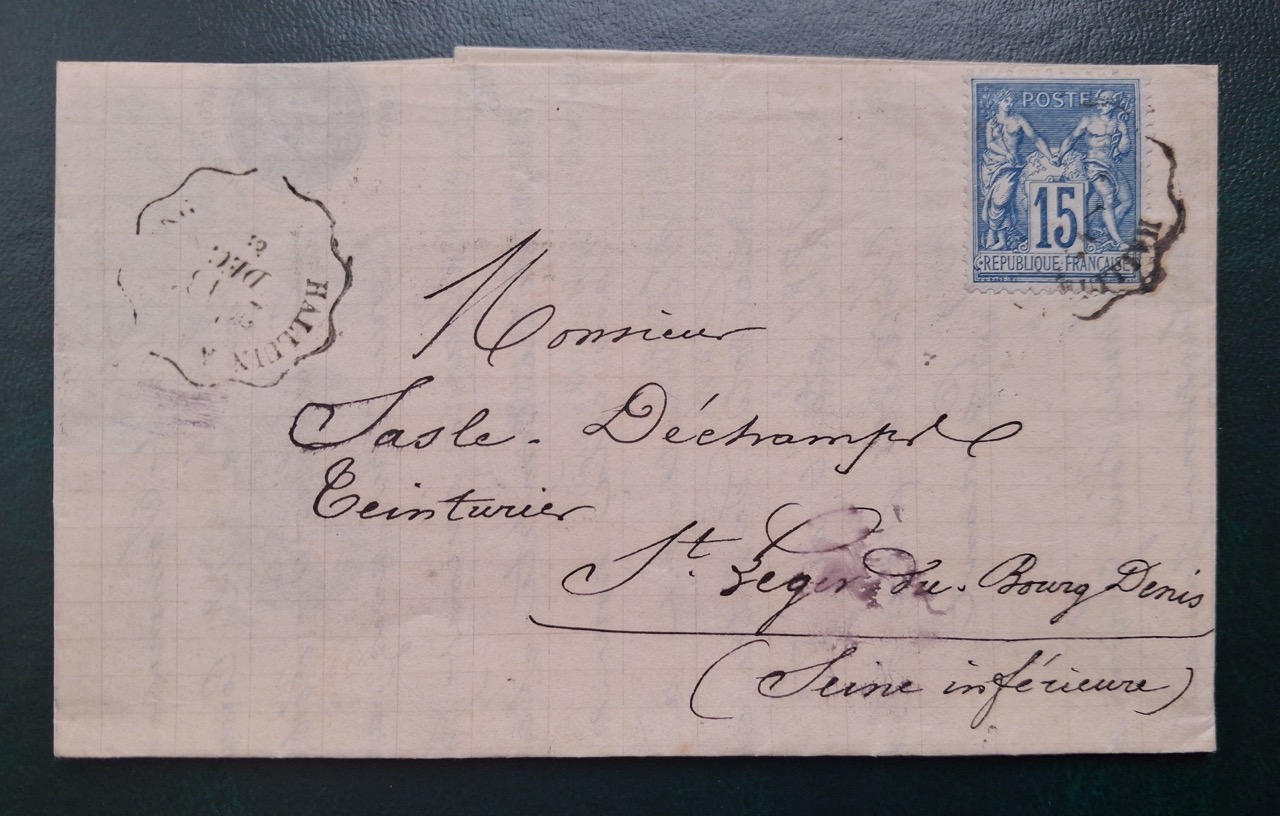 POSTE
15
REPUBLIQUE FRANÇAISE
HALLUIN
HALLUIN
DEC.
Monsieur
Sasle - Déchamps
Teinturier
St. Leger. du. Bourg Denis
(Seine inférieure)